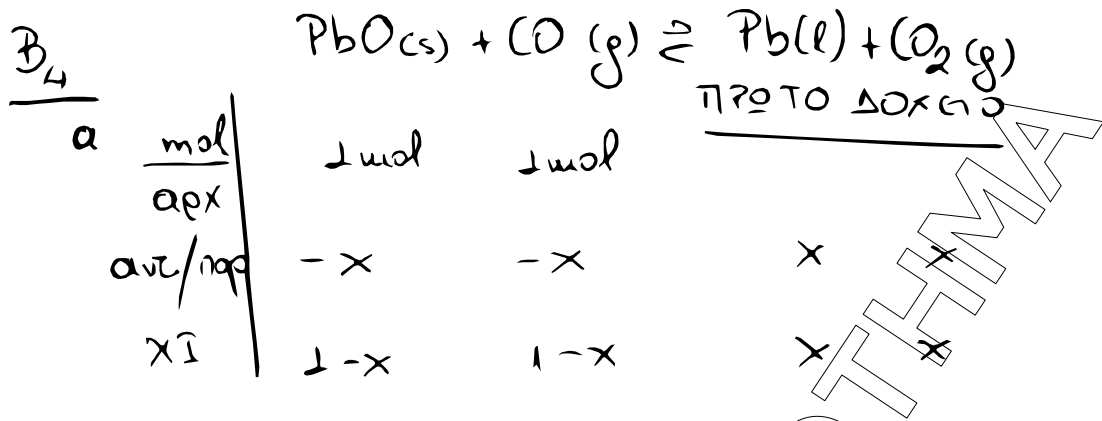 B4
PbO(s) + CO (g) ⇄ Pb(l) + CO2 (g)
ΠΡΩΤΟ ΔΟΧΕΙΟ
a
mol 1mol 1mol
αρχ
αντ/παρ -x -x x x
XI 1-x 1-x x x
ΘΗΜΑ